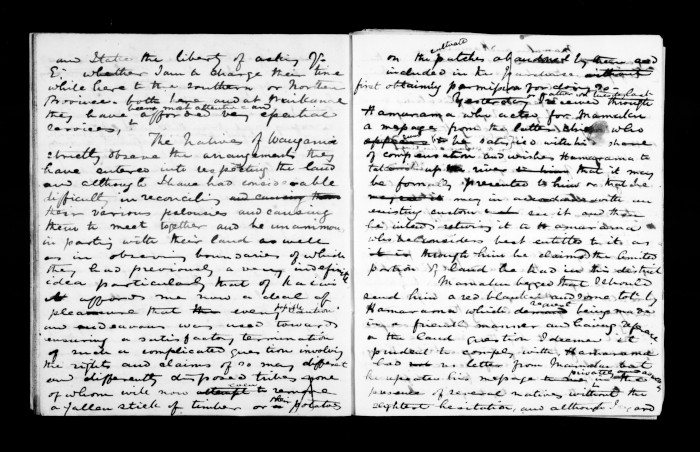 and State the liberty of asking Yr
E. whether I am to charge their time
while here to the Southern or Northern
Province both here and at Waikanae
been most attentive and
they have afforded very essential
services,
The Natives of Wanganui
strictly observe the arrangements they
have entered into respecting the land
and although I have had considerable
difficulty in reconciling and causing them
their various jealousies and causing
them to meet together and be unanimous
in parting with their land as well
as in observing boundaries of which
they had previously a very indefinite
idea particularly that of
it affords me now a deal of
pleasure that the every exertion
and endeavour was used towards
ensuring a satisfactory termination
of such a complicated question involving
the rights and claims of so many different
and differently disposed tribes none
of whom will now attempt to remove
even
a fallen stick of timber or a potatoes
their
cultivate
on the patches abandoned by them and
included in the purchase without
first obtaining permission for doing so
Yesterday I received through
Hamarama who acted for Mamaku
a message from the latter Chief who
appears to be satisfied with his share
of compensation and wishes Hamarama to
take up the to him that it may
be formally presented to him or that he
may in accordance with an
existing custom see it and then
he intends returning it to Hamarama
who he considers best entitled to it as
it is through him he claimed the limited
portion of land he had in this district
Mamaku begged that I should
send him a red blanket and one to be
Hamarama which request being made
in a friendly manner and having reference
to the land question I deemed it
prudent to comply with. Hamarama
had not a letter from Mamaku but
he repeated his message to me in the
presence of several natives without the
slightest hesitation, and although I